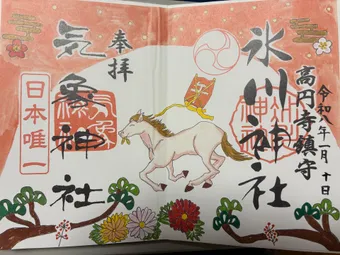 高円寺鎮守
令和八年一月十日
氷川神社
奉拝
気象神社
日本唯一